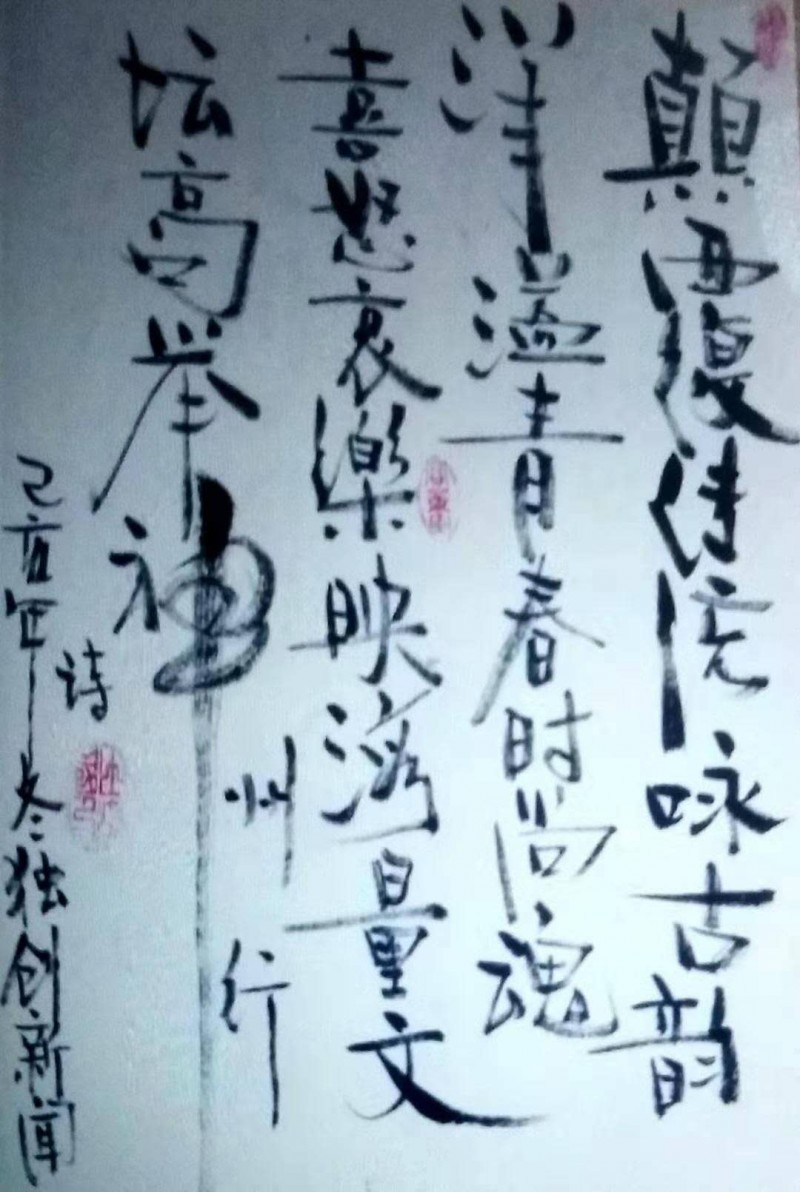 顛覆传统咏古韵
洋溢青春时尚魂
喜怒哀樂映海量文
坛高举神
州行
诗
己亥年冬独创新闻